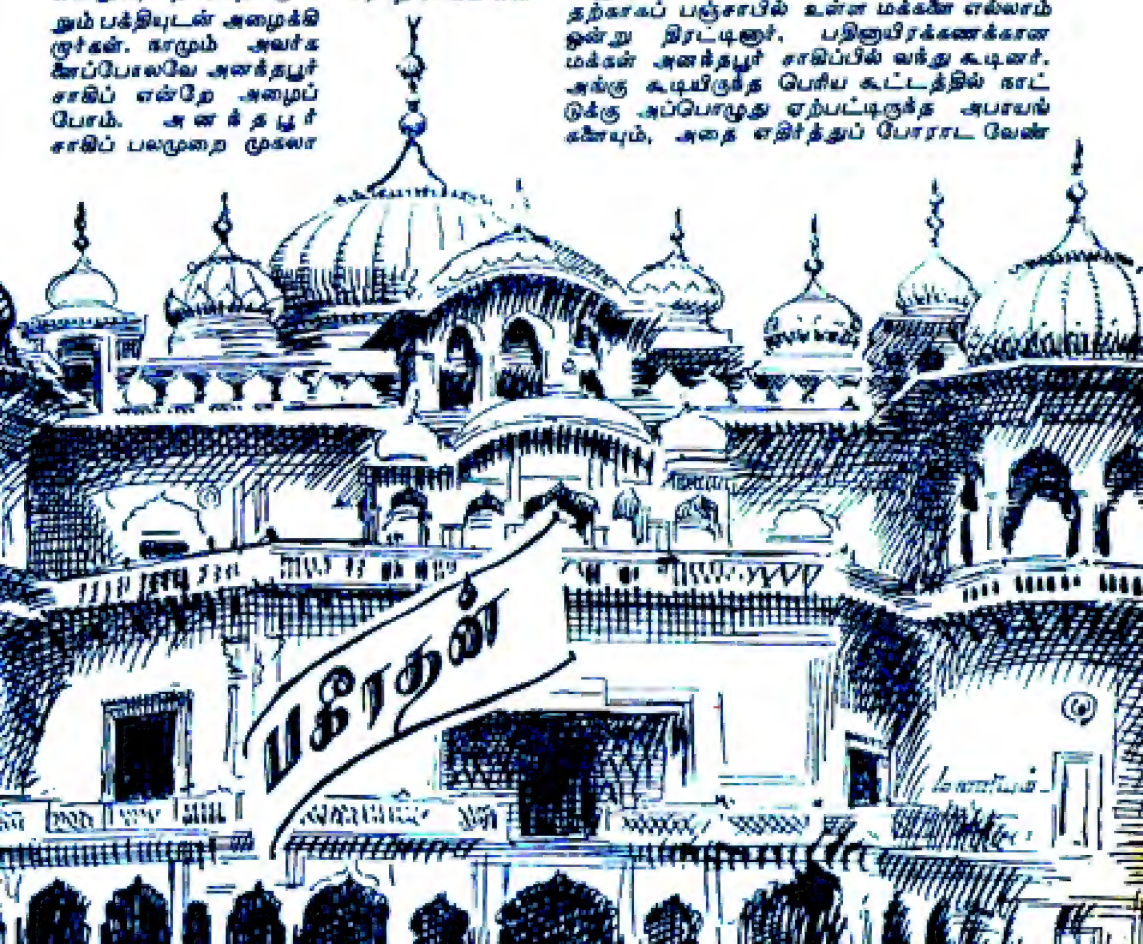 றும் பக்தியுடன் அழைக்கி
றார்கள். நாமும் அவர்க
ளைப்போலவே அனந்தபூர்
சாகிப் என்றே அழைப்
போம். அனந்தபூர்
சாகிப் பலமுறை முகலா
தற்காகப் பஞ்சாபில் உள்ள மக்களை எல்லாம்
ஒன்று திரட்டினார். பதினாயிரக்கணக்கான
மக்கள் அனந்தபூர் சாகிப்பில் வந்து கூடினர்.
அங்கு கூடியிருந்த பெரிய கூட்டத்தில் நாட்
டுக்கு அப்பொழுது ஏற்பட்டிருந்த அபாயங்
களையும், அதை எதிர்த்துப் போராட வேண்
பகீரதன்
மணியம்